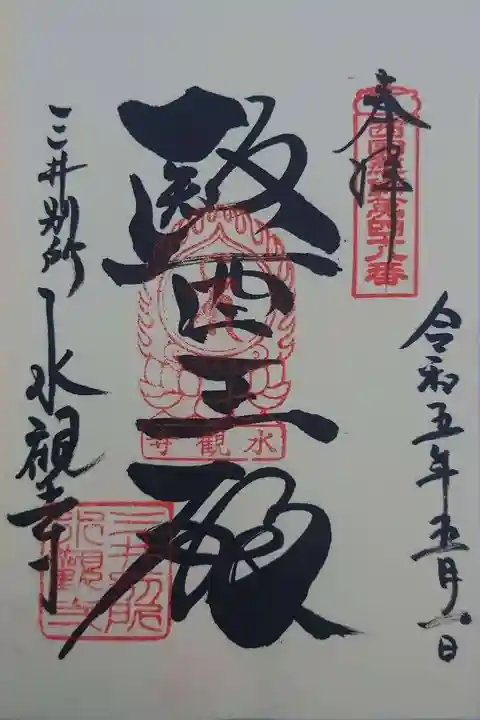 奉拝
西国薬師第四十八番
令和五年五月一日
醫王殿
水觀寺
三井別所 水観寺
三井別所
水観寺